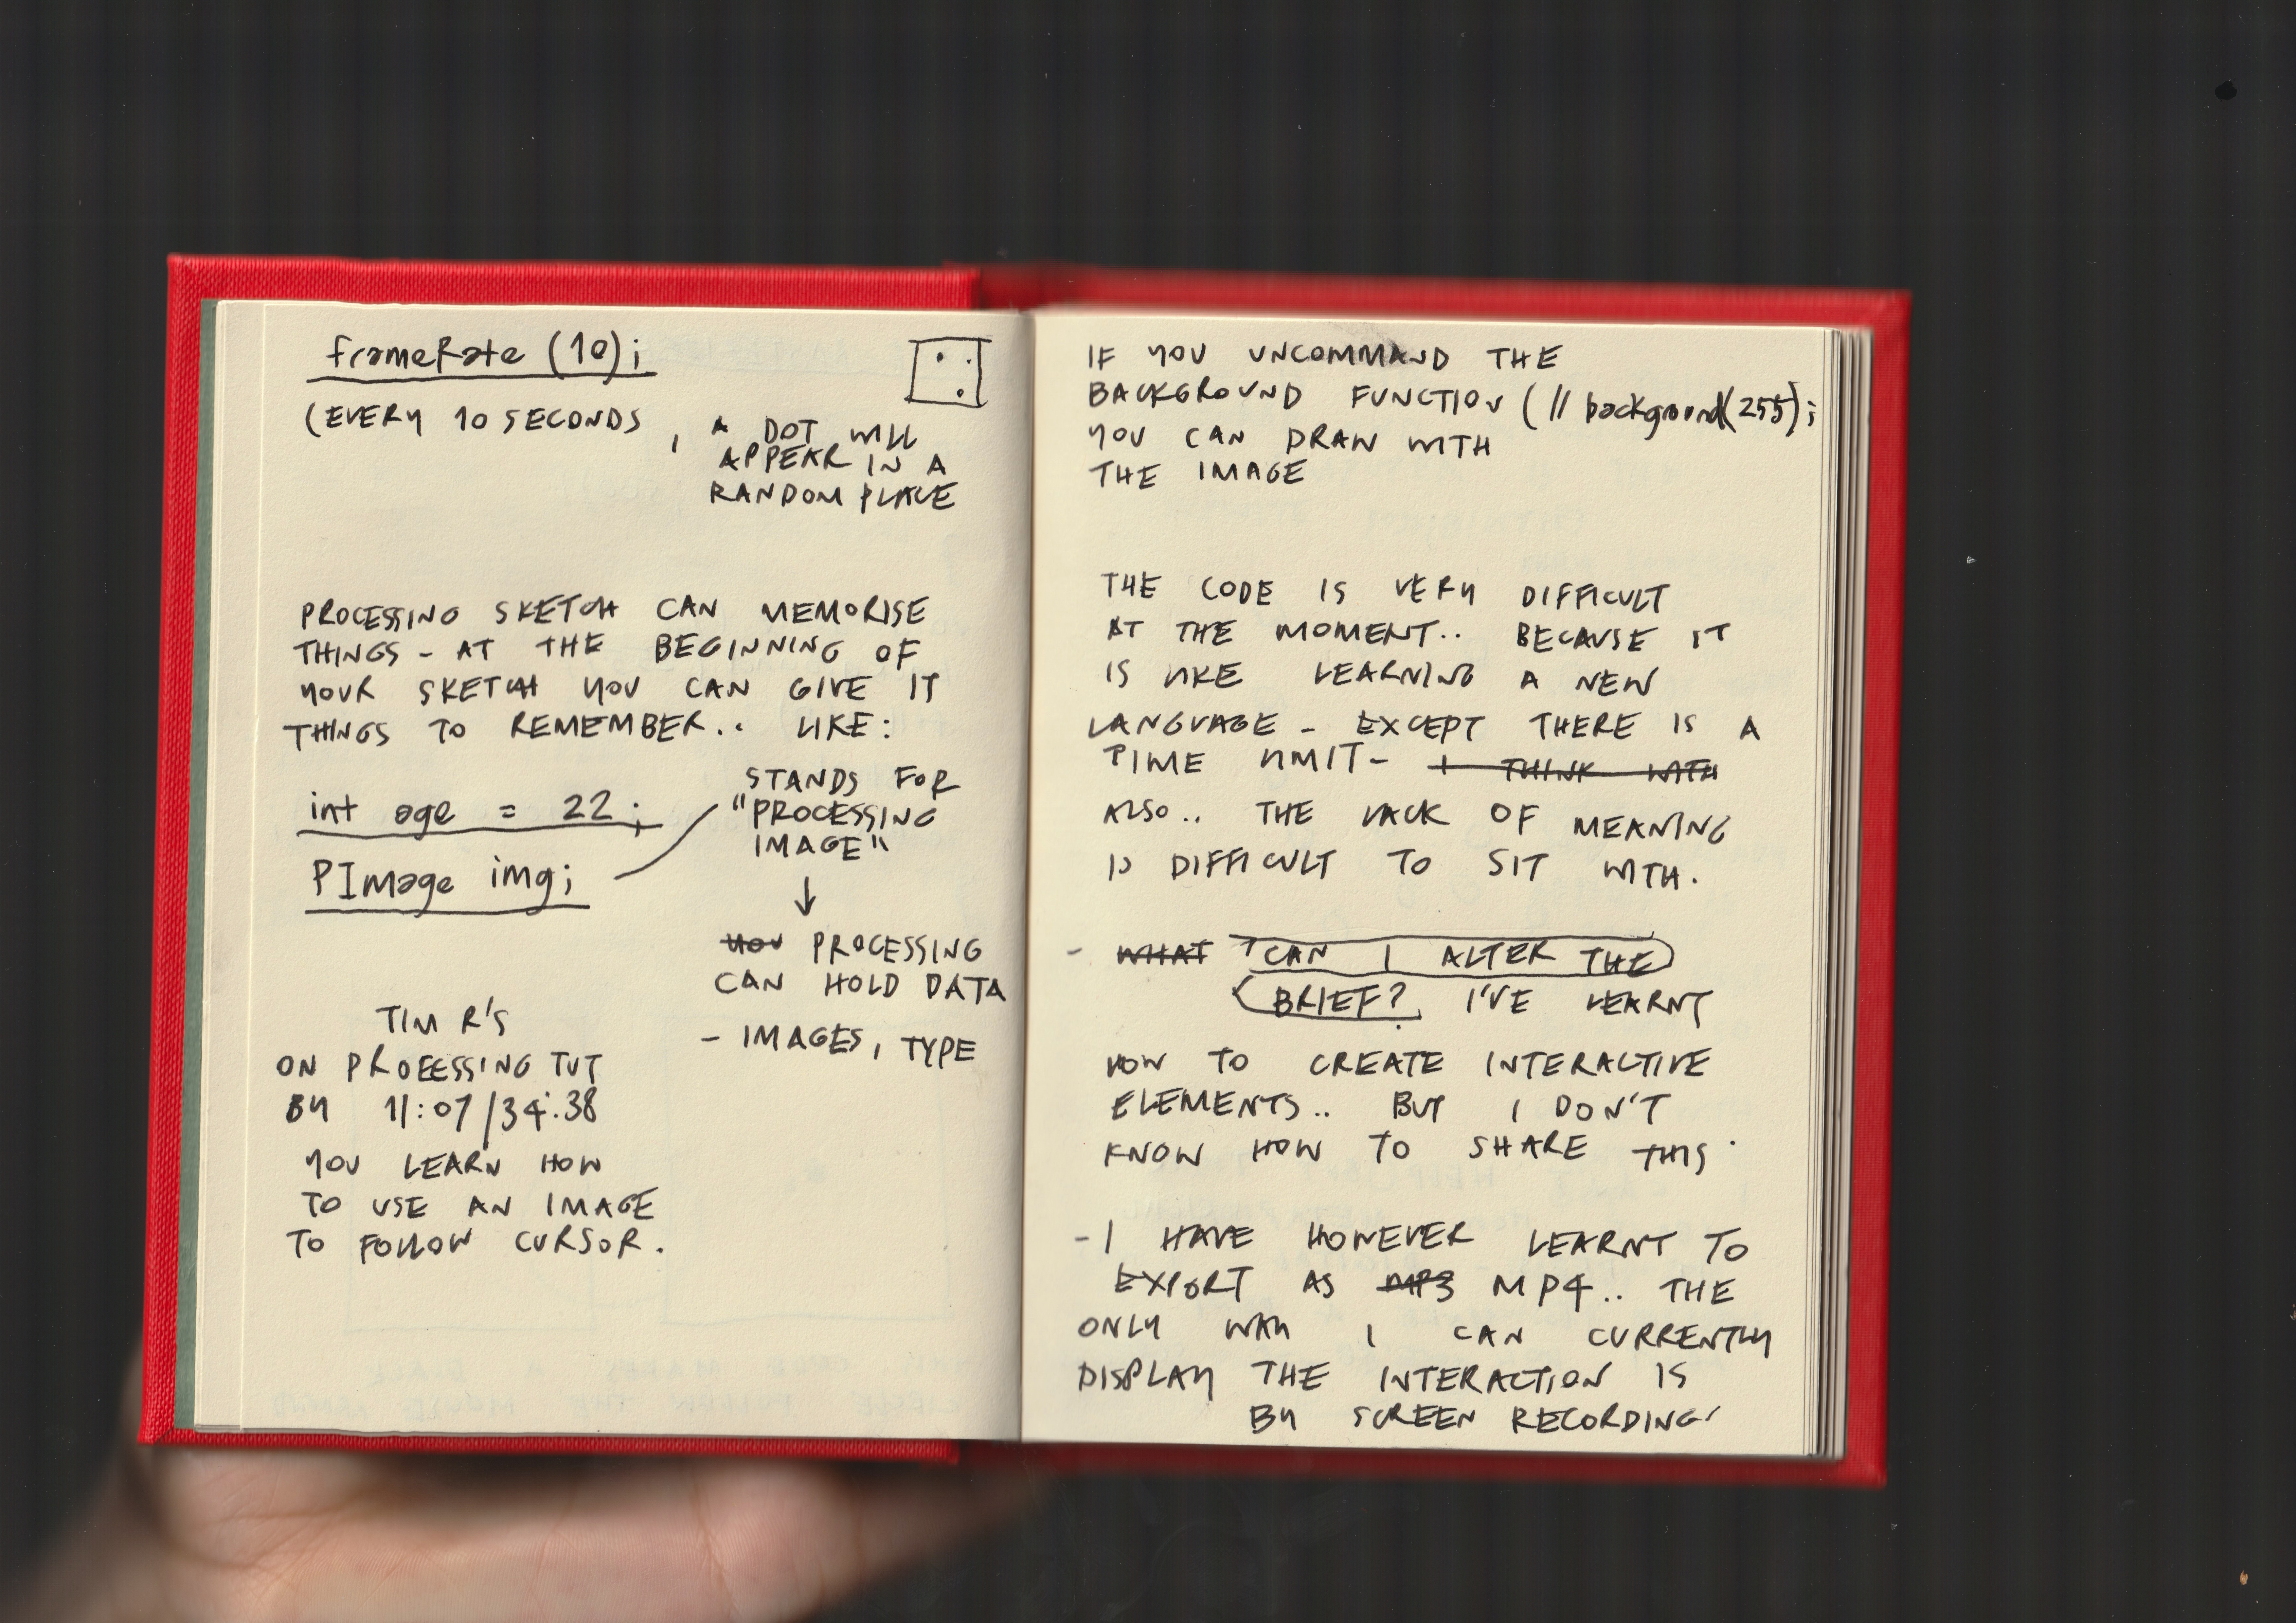 frameRate (10);
(EVERY 10 SECONDS, A DOT WILL
APPEAR IN A
RANDOM PLACE
PROCESSING SKETCH CAN MEMORISE
THINGS - AT THE BEGINNING OF
YOUR SKETCH YOU CAN GIVE IT
THINGS TO REMEMBER.. LIKE:
int age = 22;
PImage img;
STANDS FOR
"PROCESSING
IMAGE"
YOU PROCESSING
CAN HOLD DATA
- IMAGES, TYPE
TIM R'S
ON PROCESSING TUT
BY 11:07/34:38
YOU LEARN HOW
TO USE AN IMAGE
TO FOLLOW CURSOR.
IF YOU UNCOMMAND THE
BACKGROUND FUNCTION (// background(255);
YOU CAN DRAW WITH
THE IMAGE
THE CODE IS VERY DIFFICULT
AT THE MOMENT.. BECAUSE IT
IS LIKE LEARNING A NEW
LANGUAGE - EXCEPT THERE IS A
TIME LIMIT- I THINK WITH
ALSO.. THE LACK OF MEANING
IS DIFFICULT TO SIT WITH.
- WHAT CAN I ALTER THE
BRIEF? I'VE LEARNT
HOW TO CREATE INTERACTIVE
ELEMENTS.. BUT I DON'T
KNOW HOW TO SHARE THIS.
- I HAVE HOWEVER LEARNT TO
EXPORT AS MP3 MP4.. THE
ONLY WAY I CAN CURRENTLY
DISPLAY THE INTERACTION IS
BY SCREEN RECORDING